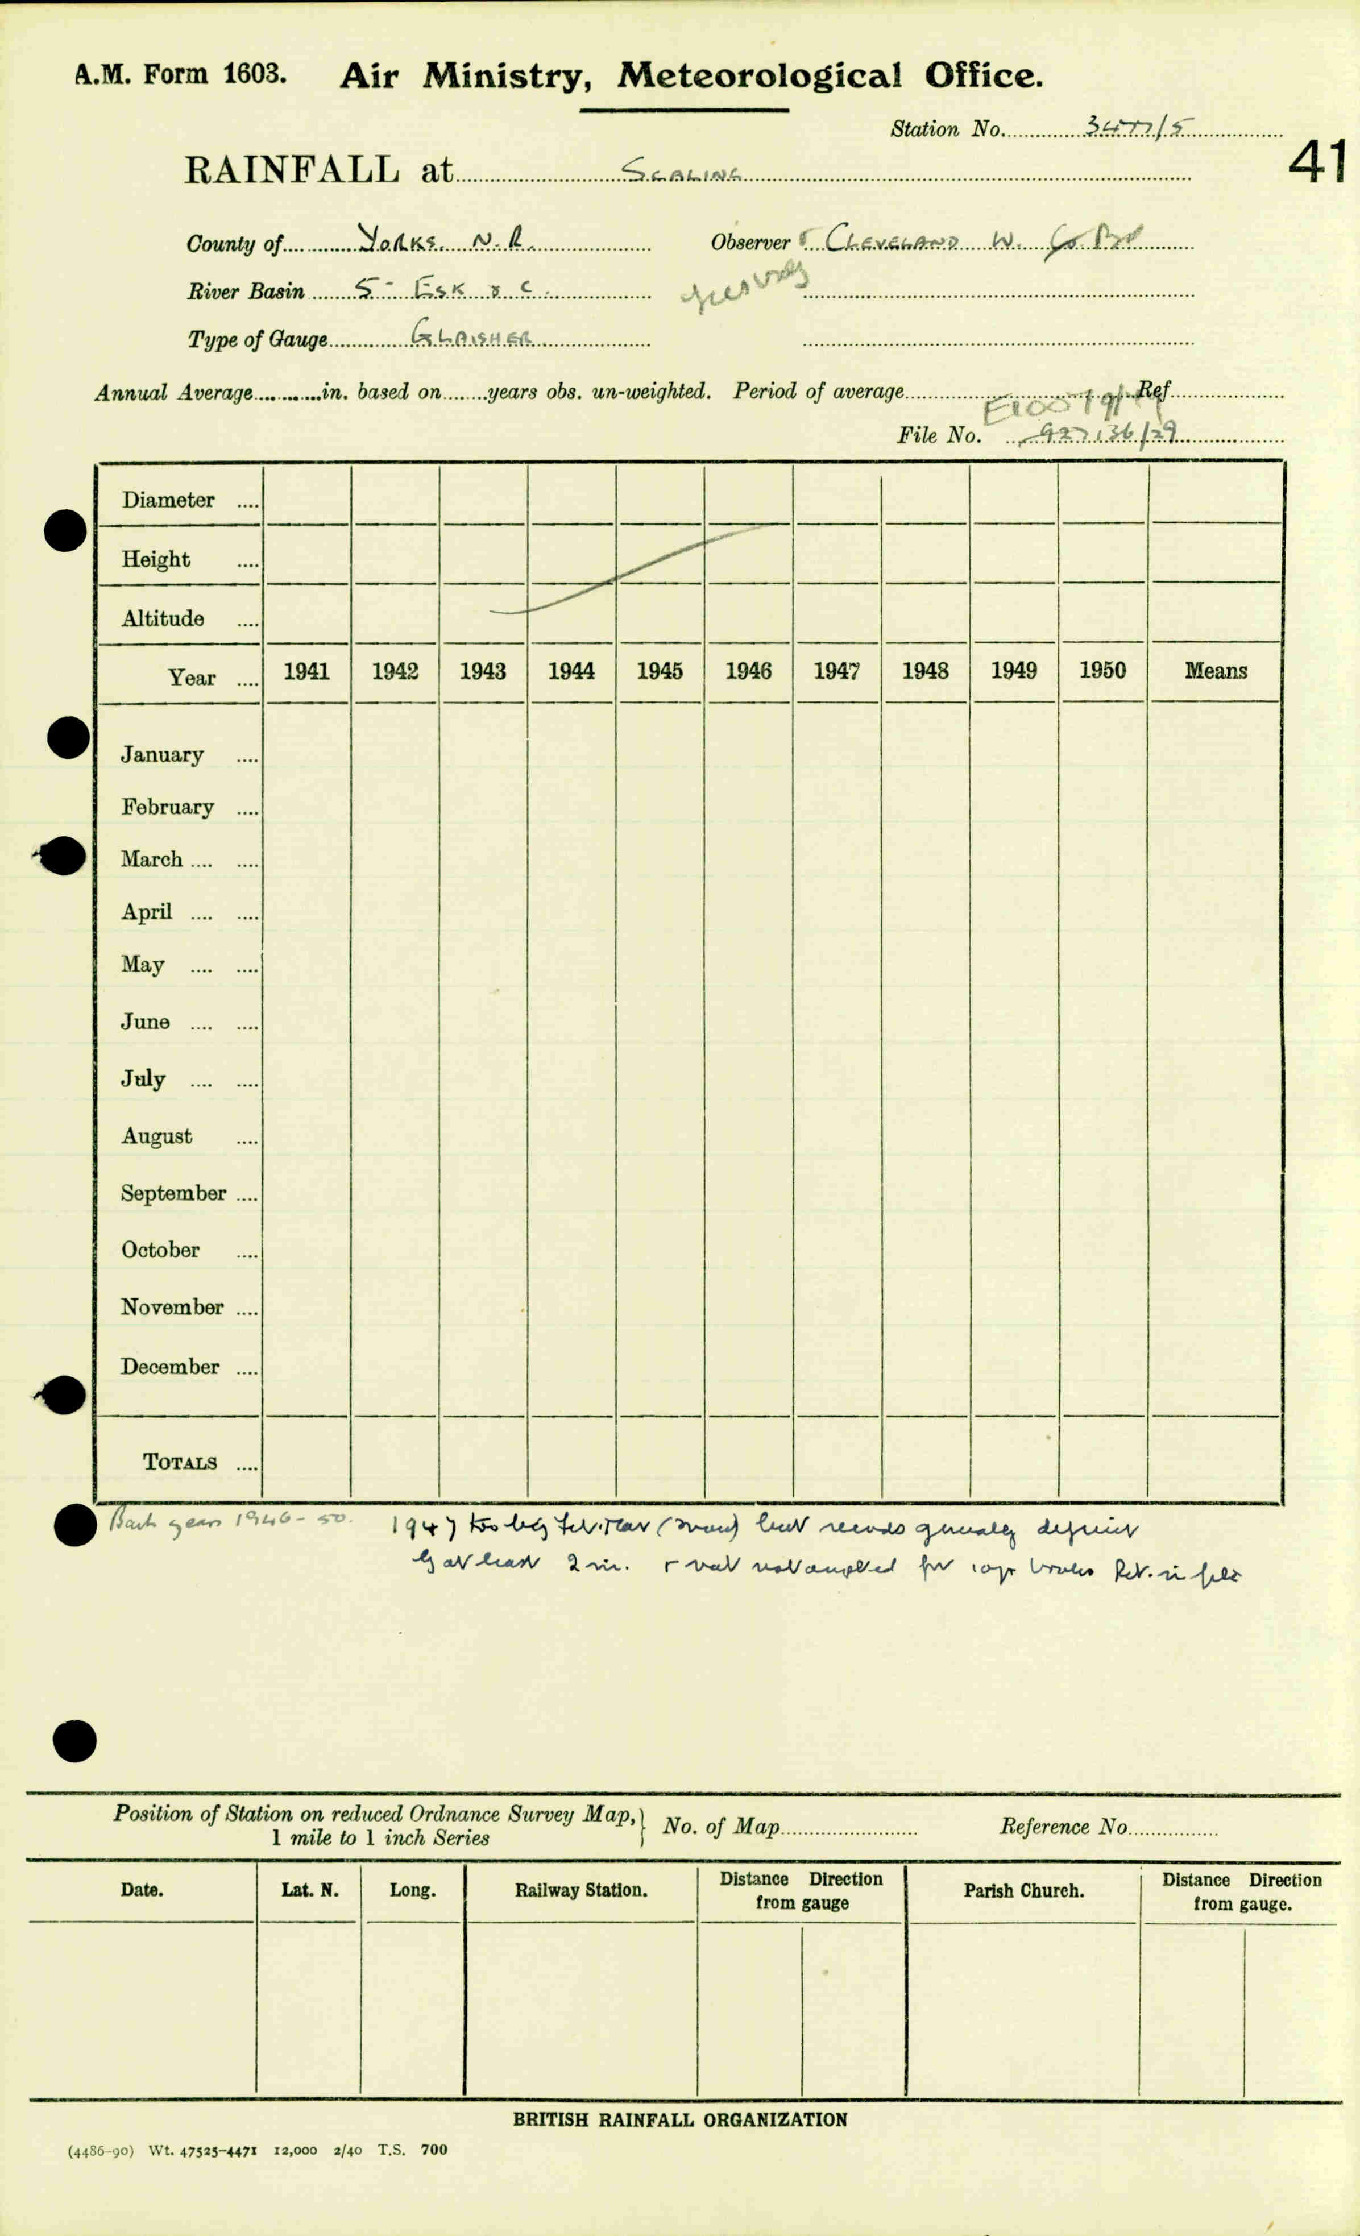 A.M. Form 1603. Air Ministry, Meteorological Office.
Station No. 3477/5
41
RAINFALL at SCALING
County of YORKS. N.R. Observer CLEVELAND W. Bd
River Basin 5- ESK & C.
Type of Gauge GLAISHER
Annual Average in. based on years obs. un-weighted. Period of average Ref
File No. 927136/29
Diameter
Height
Altitude
Year 1941 1942 1943 1944 1945 1946 1947 1948 1949 1950 Means
January
February
March
April
May
June
July
August
September
October
November
December
TOTALS
Back years 1946-50. 1947 too big Feb. Mar (snow) but records generally deficient
by at least 2 in. not accepted for Ret. in file
Position of Station on reduced Ordnance Survey Map, } No. of Map Reference No.
1 mile to 1 inch Series
Date. Lat. N. Long. Railway Station. Distance Direction from gauge Parish Church. Distance Direction from gauge.
BRITISH RAINFALL ORGANIZATION
(4486-90) Wt. 47525-4471 12,000 2/40 T.S. 700